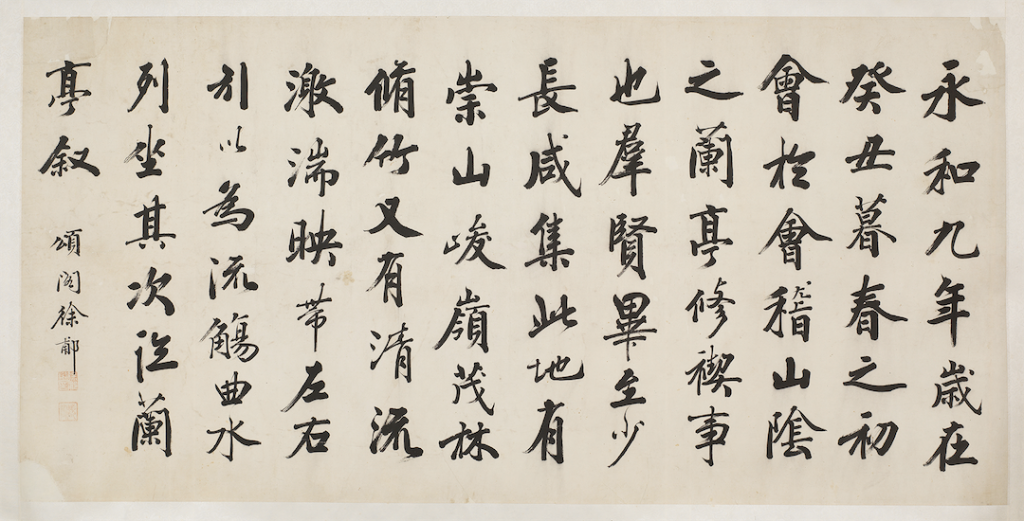 永和九年歲在
癸丑暮春之初
會於會稽山陰
之蘭亭修禊事
也羣賢畢至少
長咸集此地有
崇山峻嶺茂林
脩竹又有清流
激湍映帶左右
引以為流觴曲水
列坐其次蘭
亭叙
頌閣徐郙